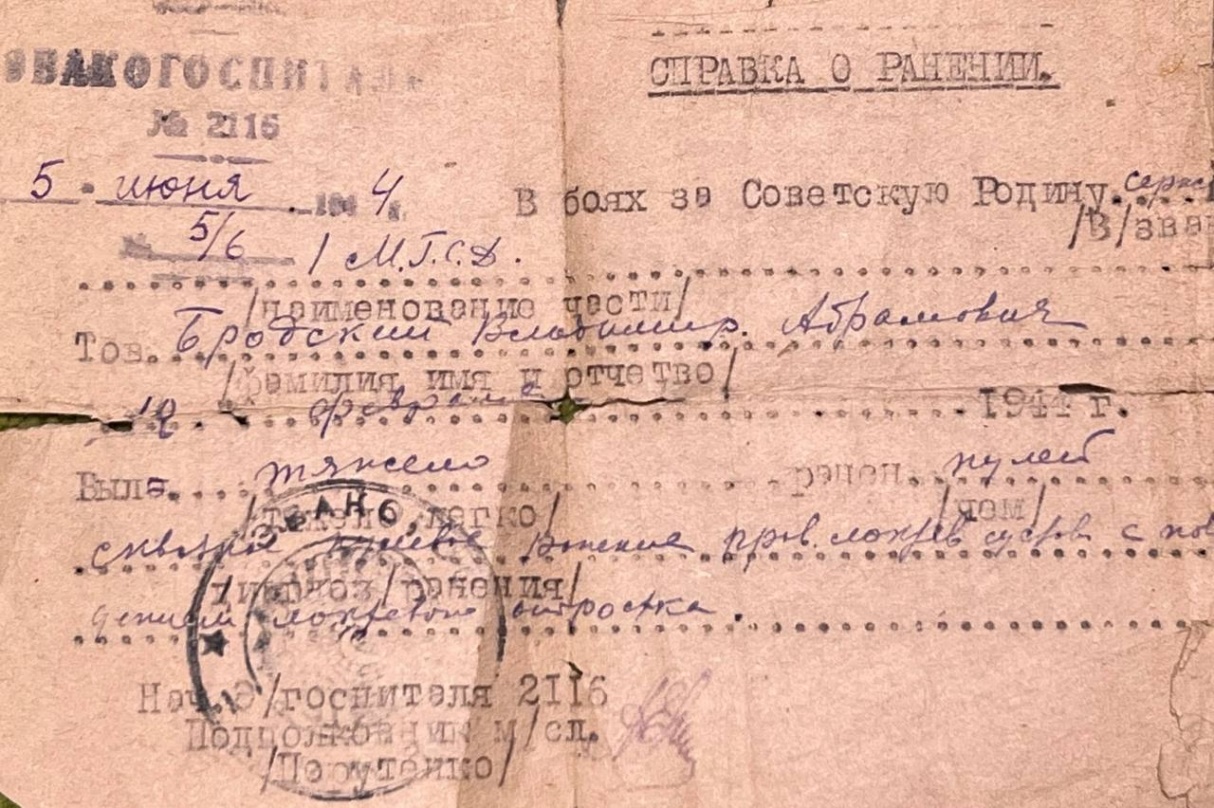 ЭВАКОГОСПИТАЛЬ
№ 2116
5 июня 1944 г.
№ 5/6
СПРАВКА О РАНЕНИИ.
В боях за Советскую Родину. серж
/В/зва
1 М.Г.С.Д.
/наименование части/
Тов. Бродский Владимир. Абрамович
/фамилия имя и отчество/
февраля 1944 г.
Был тяжело ранен пулей
/тяжело, легко/ /чем/
сквозное пулевое ранение прав. локтев сустав с пов
/диагноз/ранения/
дением локтевого отростка.
Нач. э/госпиталя 2116
Подполковник м/сл.